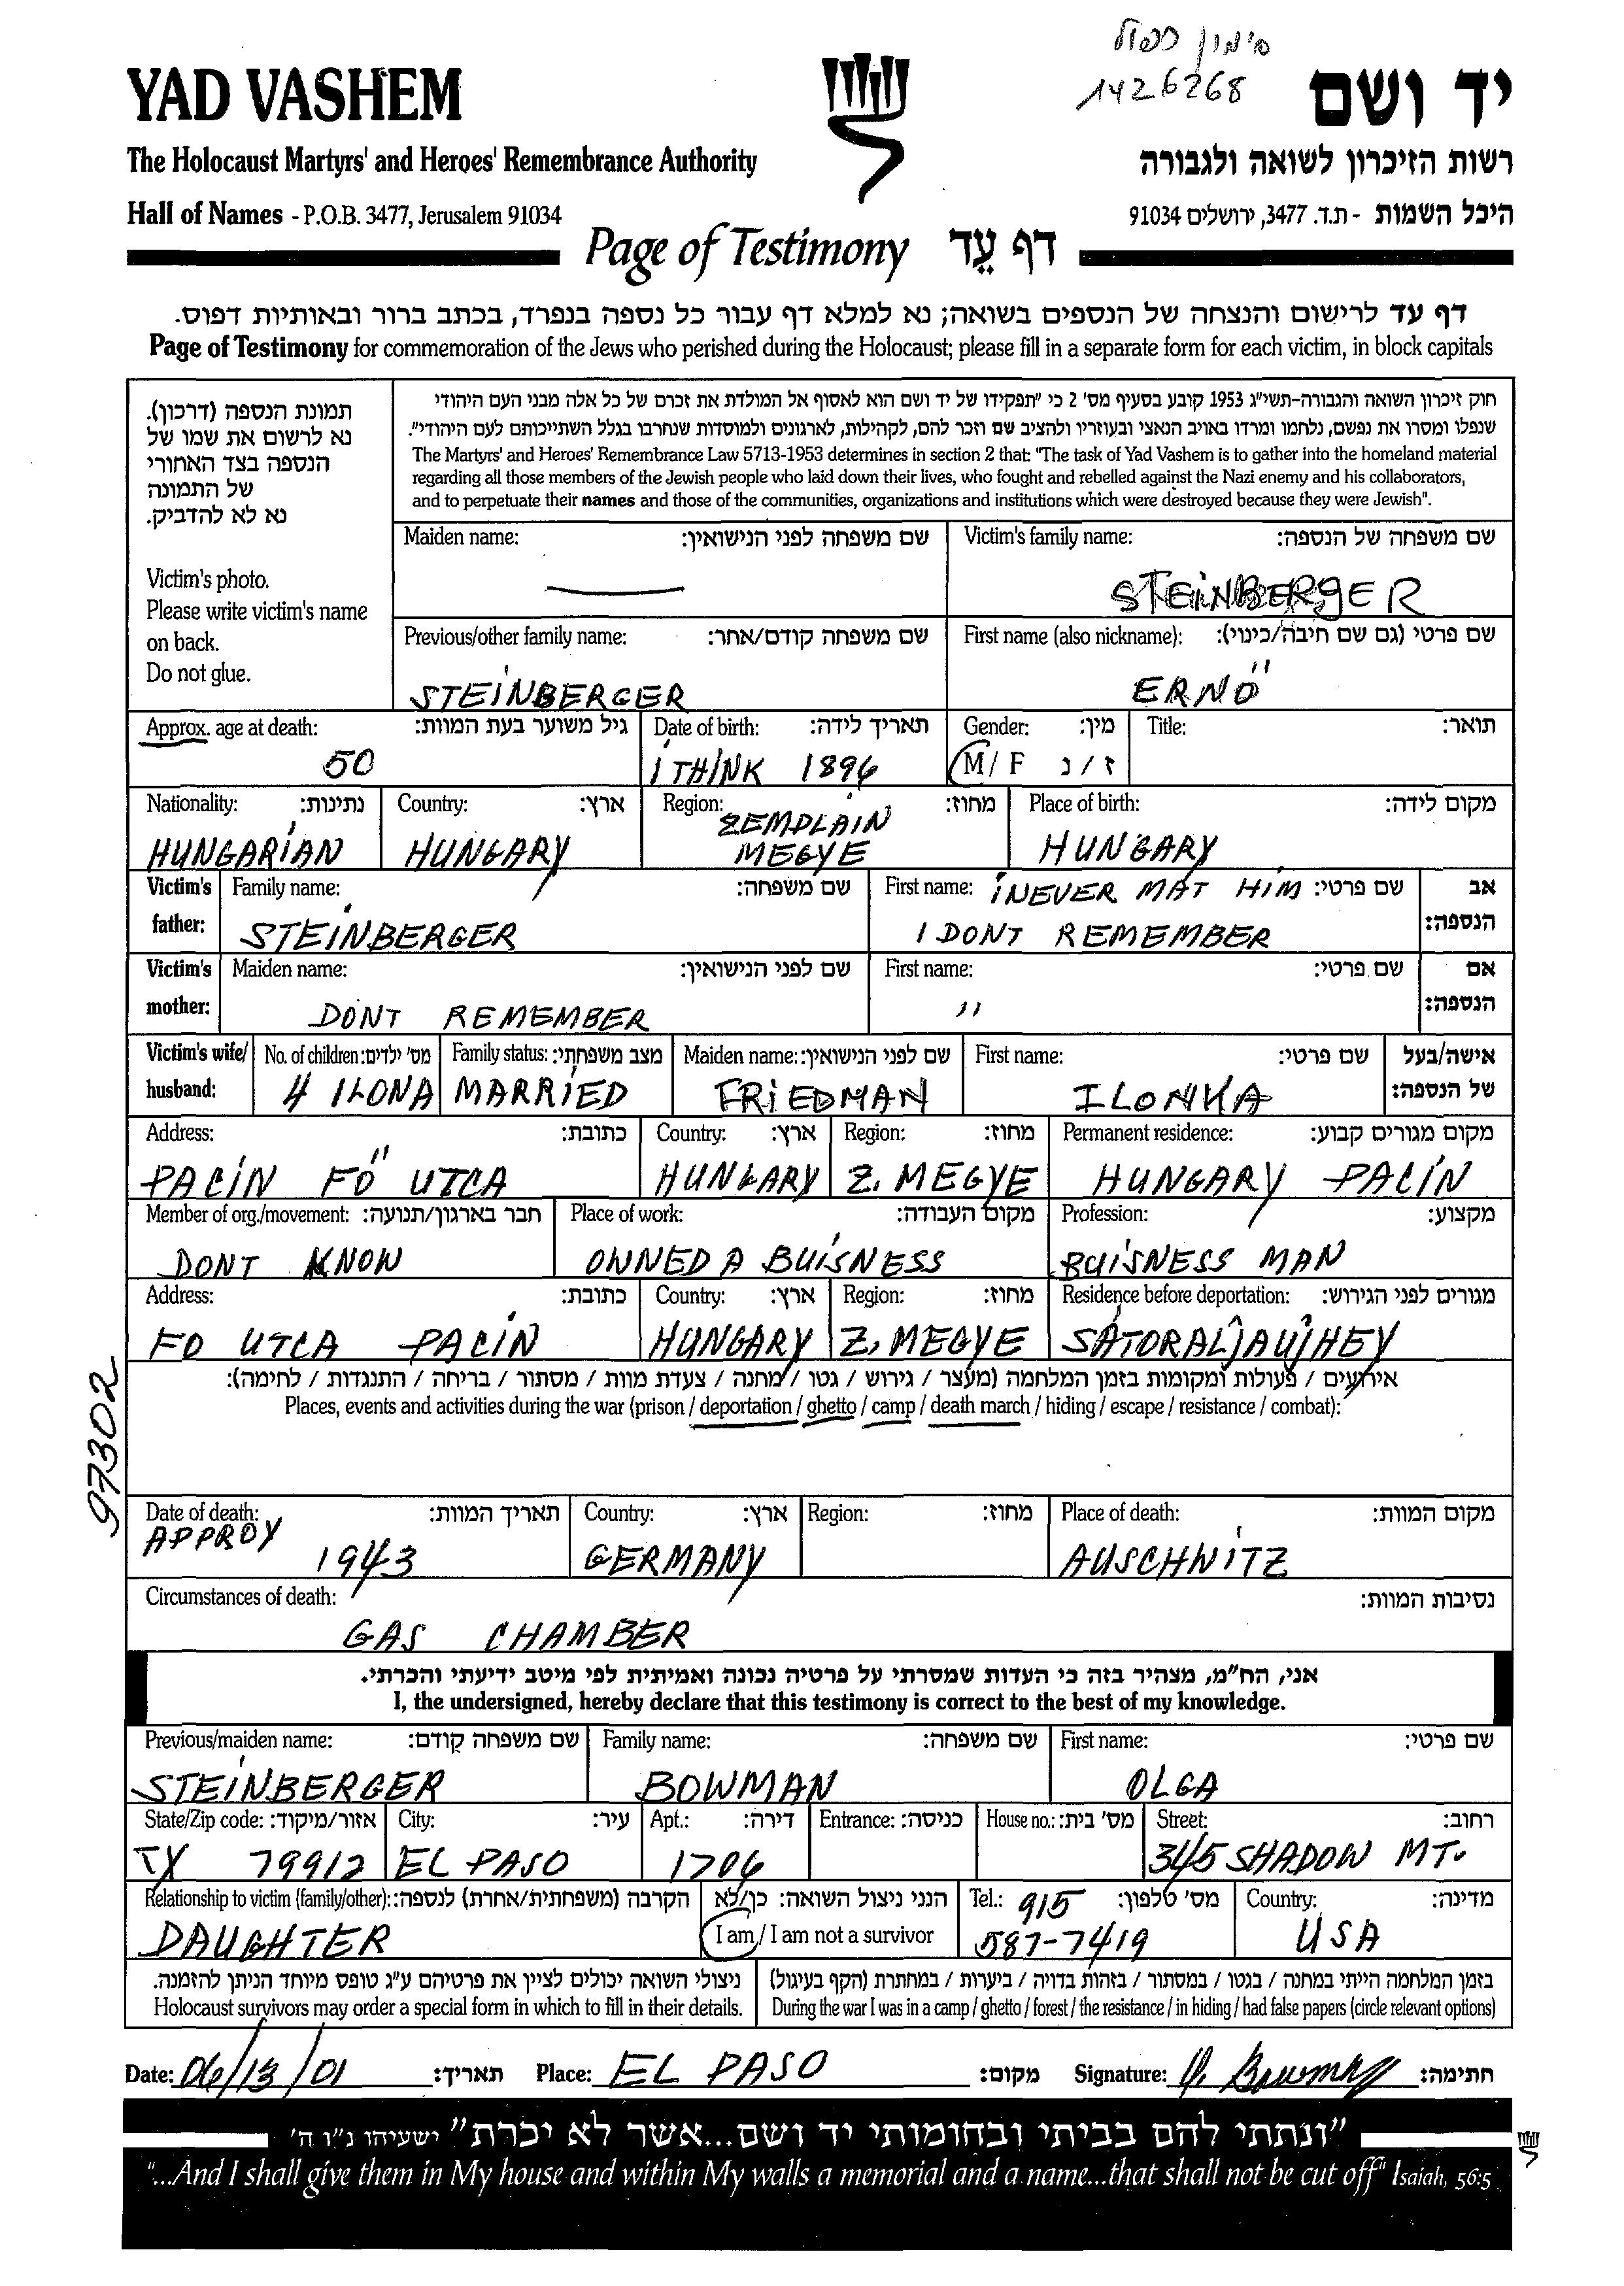 סימון כפול
1426268
YAD VASHEM
יד ושם
The Holocaust Martyrs' and Heroes' Remembrance Authority
רשות הזיכרון לשואה ולגבורה
Hall of Names - P.O.B. 3477, Jerusalem 91034
היכל השמות - ת.ד. 3477, ירושלים 91034
Page of Testimony דף עֵד
דף עד לרישום והנצחה של הנספים בשואה; נא למלא דף עבור כל נספה בנפרד, בכתב ברור ובאותיות דפוס.
Page of Testimony for commemoration of the Jews who perished during the Holocaust; please fill in a separate form for each victim, in block capitals
תמונת הנספה (דרכון).
נא לרשום את שמו של
הנספה בצד האחורי
של התמונה
נא לא להדביק.
Victim's photo.
Please write victim's name
on back.
Do not glue.
חוק זיכרון השואה והגבורה-תשי"ג 1953 קובע בסעיף מס' 2 כי "תפקידו של יד ושם הוא לאסוף אל המולדת את זכרם של כל אלה מבני העם היהודי
שנפלו ומסרו את נפשם, נלחמו ומרדו באויב הנאצי ובעוזריו ולהציב שם וזכר להם, לקהילות, לארגונים ולמוסדות שנחרבו בגלל השתייכותם לעם היהודי".
The Martyrs' and Heroes' Remembrance Law 5713-1953 determines in section 2 that: "The task of Yad Vashem is to gather into the homeland material
regarding all those members of the Jewish people who laid down their lives, who fought and rebelled against the Nazi enemy and his collaborators,
and to perpetuate their names and those of the communities, organizations and institutions which were destroyed because they were Jewish".
Maiden name: שם משפחה לפני הנישואין: Victim's family name: שם משפחה של הנספה:
STEINBERGER
Previous/other family name: שם משפחה קודם/אחר: First name (also nickname): שם פרטי (גם שם חיבה/כינוי):
STEINBERGER ERNŐ
Approx. age at death: גיל משוער בעת המוות: Date of birth: תאריך לידה: Gender: מין: Title: תואר:
50 I THINK 1896 M / F ז / נ
Nationality: נתינות: Country: ארץ: Region: מחוז: Place of birth: מקום לידה:
HUNGARIAN HUNGARY ZEMPLAIN MEGYE HUNGARY
Victim's father: Family name: שם משפחה: First name: I NEVER MAT HIM שם פרטי: אב הנספה:
STEINBERGER I DONT REMEMBER
Victim's mother: Maiden name: שם לפני הנישואין: First name: שם פרטי: אם הנספה:
DONT REMEMBER "
Victim's wife/ husband: No. of children: מס' ילדים: Family status: מצב משפחתי: Maiden name: שם לפני הנישואין: First name: שם פרטי: אישה/בעל של הנספה:
4 ILONA MARRIED FRIEDMAN ILONKA
Address: כתובת: Country: ארץ: Region: מחוז: Permanent residence: מקום מגורים קבוע:
PACIN FŐ UTCA HUNGARY Z. MEGYE HUNGARY PACIN
Member of org./movement: חבר בארגון/תנועה: Place of work: מקום העבודה: Profession: מקצוע:
DONT KNOW OWNED A BUISNESS BUISNESS MAN
Address: כתובת: Country: ארץ: Region: מחוז: Residence before deportation: מגורים לפני הגירוש:
FO UTCA PACIN HUNGARY Z. MEGYE SÁTORALJAUJHEY
אירועים / פעולות ומקומות בזמן המלחמה (מעצר / גירוש / גטו / מחנה / צעדת מוות / מסתור / בריחה / התנגדות / לחימה):
Places, events and activities during the war (prison / deportation / ghetto / camp / death march / hiding / escape / resistance / combat):
97302
Date of death: תאריך המוות: Country: ארץ: Region: מחוז: Place of death: מקום המוות:
APPROX 1943 GERMANY AUSCHWITZ
Circumstances of death: נסיבות המוות:
GAS CHAMBER
אני, הח"מ, מצהיר בזה כי העדות שמסרתי על פרטיה נכונה ואמיתית לפי מיטב ידיעתי והכרתי.
I, the undersigned, hereby declare that this testimony is correct to the best of my knowledge.
Previous/maiden name: שם משפחה קודם: Family name: שם משפחה: First name: שם פרטי:
STEINBERGER BOWMAN OLGA
State/Zip code: אזור/מיקוד: City: עיר: Apt.: דירה: Entrance: כניסה: House no.: מס' בית: Street: רחוב:
TX 79912 EL PASO 1706 345 SHADOW MT.
Relationship to victim (family/other): הקרבה (משפחתית/אחרת) לנספה: הנני ניצול השואה: כן/לא Tel.: 915 מס' טלפון: Country: מדינה:
DAUGHTER I am / I am not a survivor 587-7419 USA
ניצולי השואה יכולים לציין את פרטיהם ע"ג טופס מיוחד הניתן להזמנה.
Holocaust survivors may order a special form in which to fill in their details.
בזמן המלחמה הייתי במחנה / בגטו / במסתור / בזהות בדויה / ביערות / במחתרת (הקף בעיגול)
During the war I was in a camp / ghetto / forest / the resistance / in hiding / had false papers (circle relevant options)
Date: 06/13/01 תאריך: Place: EL PASO מקום: Signature: O. Bowman חתימה:
"ונתתי להם בביתי ובחומותי יד ושם...אשר לא יכרת" ישעיהו נ"ו ה'
"...And I shall give them in My house and within My walls a memorial and a name...that shall not be cut off" Isaiah, 56:5